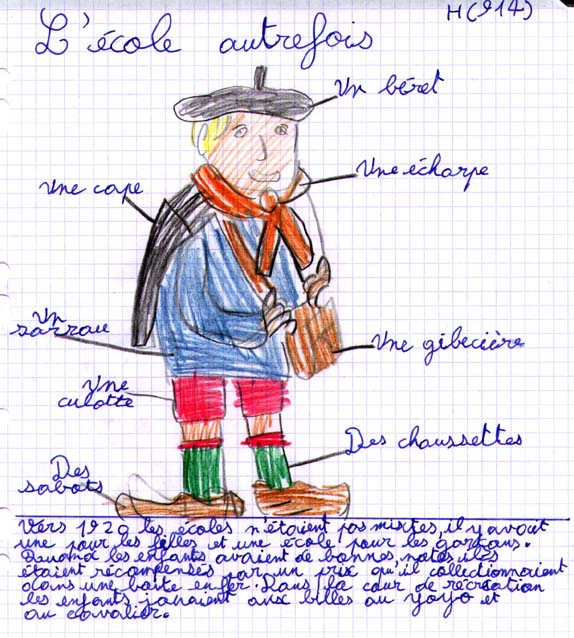 H(914)
L'école autrefois
Un béret
Une écharpe
Une cape
Un
sarrau
Une gibecière
Une
culotte
Des chaussettes
Des
sabots
Vers 1920 les écoles n'étaient pas mixtes, il y avait
une pour les filles et une école pour les garçons.
Quand les enfants avaient de bonnes notes ils
étaient récompensés par un prix qu'il collectionnaient
dans une boite en fer. Dans la cour de récréation
les enfants jouaient aux billes au yoyo et
au cavalier.